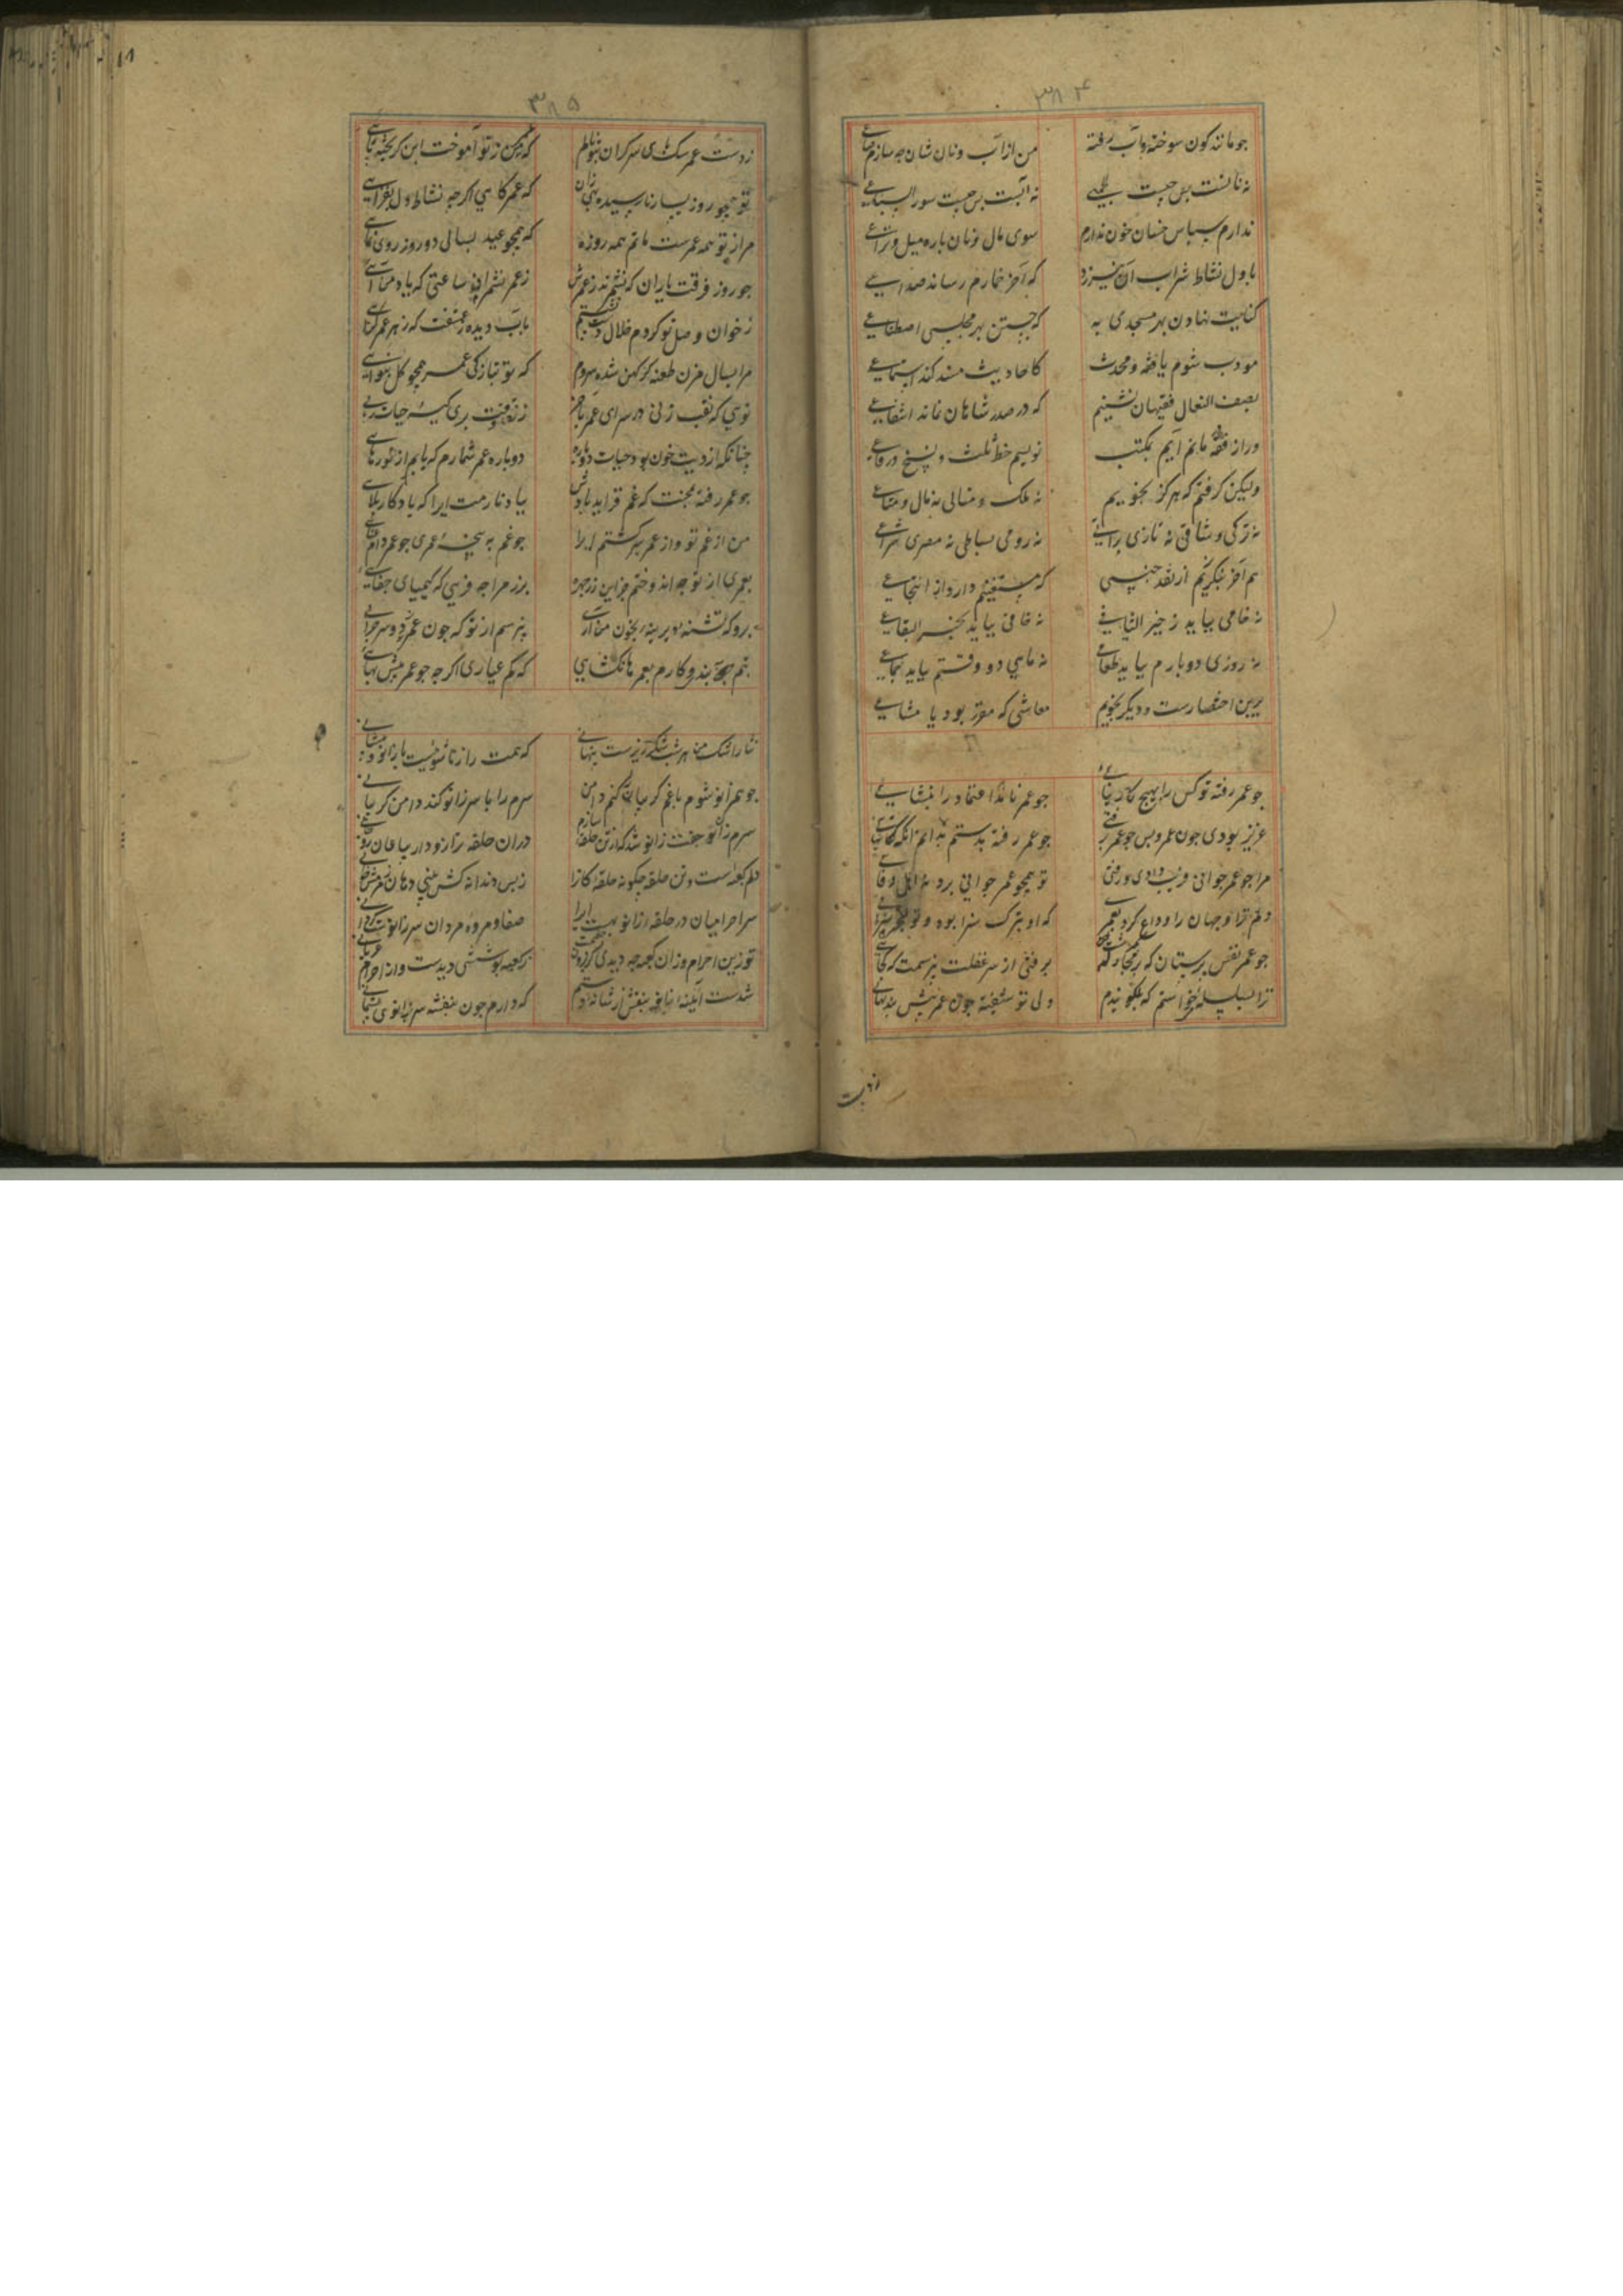 ۳۸۴
چو ماند کون سوخته و آب رفته من از آب و نان شان چه سازم
نه نانست پس چیست نه آبست پس چیست سور السباعی
ندارم سپاس خسان چون ندارم سوی مال و نان پاره میل و نزاعی
باول نشاط شراب آن نیرزد که آخر خمارم رساند صداعی
کنایت نهادن بهر مسجدی به که جستن بهر مجلسی اصطناعی
مودب شوم یا فقیه و محدث کاحادیث مسند کند استماعی
بصف النعال فقیهان نشینم که در صدر شاهان نماند ارتفاعی
ور از فقه مانم آیم بمکتب نویسم خط ثلث و نسخ و رقاعی
ولیکن گرفتم که هرگز نجویم نه ملک و منالی نه مال و متاعی
نه ترکی وشاقی نه تازی براقی نه رومی بساطی نه مصری شراعی
هم آخر بنگریزم از نقد جنسی که مستغنیم دارد از انتجاعی
نه خامی بباید ز خیر الثیابی نه خانی بباید بخیر البقاعی
نه روزی دو بارم بباید طعامی نه ماهی دو وقتم بباید جماعی
برین اختصارست و دیگر نجویم معاشی که مقرر بود یا مشاعی
چو عمر رفته تو کس را بهیچ کار نیایی چو عمر نامده اعتماد را بنشایی
عزیز بودی چون عمر و پس چو عمر برفتی چو عمر رفته بدستم ندانم آنکه کی آیی
مرا چو عمر جوانی فریب دادی و رفتی تو همچو عمر جوانی برو نه اهل وفایی
دلم ترا و جهان را وداع کرد بعمر که او بترک سزا بود و تو بهجر سزایی
چو عمر نفس پرستان که بر محال گذشت برفتی از سر غفلت نپرسمت که کجایی
ترا بسلسله خواستم که نگویدم ولی تو شیفته چون عمر بیش بند نپایی
۳۸۵
ز دست عمر سبک پای سرگران بتو نالم که عمر من ز تو آموخت این گریخته پایی
تو همچو روز بسیار نارسیده که عمر کاهی اگرچه نشاط دل بفزایی
مرا ز تو همه عمرست ماتم همه روزه که همچو عید بسالی دو روز روی نمایی
چو روز فرقت یاران که نشمرند ز عمرش ز عمر نشمرم آن ساعتی که یاد من آیی
ز خوان وصل تو کردم خلال دست بشستم بآب دیده ز عشقت که زهر عمر گزایی
مرا بسال مزن طعنه گر کهن شده سروم که تو بتازگی عمر همچو گل بنوایی
تویی که نقب زنی در سرای عمر بآخر ز نه نقب بری کیسه حیات ربایی
چنانکه از دیت خون بود حیات دوباره دوباره عمر شمارم که یابم از تو رهایی
چو عمر رفته بمحنت که غم فزاید یادش بیاد نارمت ایرا که یادگار بلایی
من از غم تو و از عمر سیر گشتم ایرا چو غم به هیچ عمری چو عمر دام فنایی
بعمری از تو چه اندوختم جز این زر چهره بزر مرا چه فریبی که کیمیای جفایی
برو که تشنه دیرینه بخون من آری بپرسم از تو که چون عمر زود سیر چرایی
بنم آبندو کارم بعمرها نگشایی که کم عیاری اگرچه چو عمر بیش بهایی
نثار اشک من هر شب شکرریزست پنهانی که همت را زناشوئیست با زانو و پیشانی
چو هم زانو شوم با غم گریبان را کنم دامن سرم را با سر زانو کند دامن گریبانی
سرم زان جفت زانو شد که از تن حلقه سازم در آن حلقه ترازودار بیاعان
دلم کعبه‌ است و تن حلقه چگونه حلقه کانرا ز بس دندانه کش بینی دهان زمزمش خوانی
سر احرامیان در حلقه زانو بهست ایرا صفا و مروه مردان سر زانوست گردانی
تو زین احرام وزان کعبه چه دیدی کز برون ز کعبه پوششی دیدست وز احرام عریانی
شدست آیینه زانو بنفش از شانه دستم که دارم چون بنفشه سر بزانوی پشیمانی